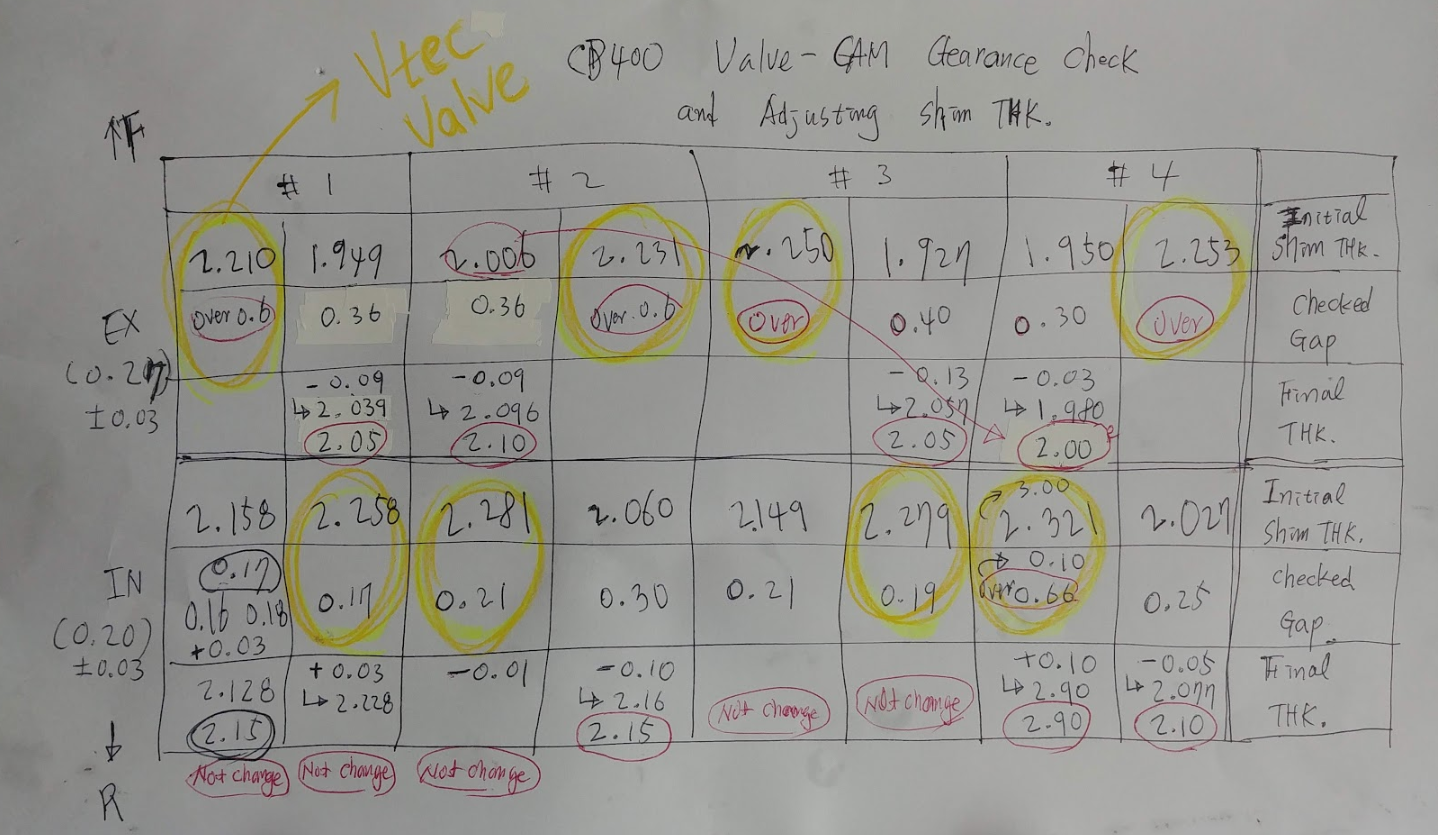 Vtec
Valve
CB400 Valve-CAM Clearance Check
and Adjusting Shim THK.
↑F
#1 #2 #3 #4
2.210 1.949 2.006 2.231 2.250 1.927 1.950 2.253 Initial
Shim THK.
EX
(0.27)
±0.03
Over 0.6 0.36 0.36 Over 0.6 Over 0.40 0.30 Over Checked
Gap
-0.09 -0.09 -0.13 -0.03 Final
↳2.039 ↳2.096 ↳2.057 ↳1.980 THK.
2.05 2.10 2.05 2.00
→3.00
2.158 2.258 2.281 2.060 2.149 2.279 2.321 2.027 Initial
Shim THK.
IN
(0.20)
±0.03
0.17 →0.10 Checked
0.16 0.18 0.17 0.21 0.30 0.21 0.19 Over 0.66 0.25 Gap
+0.03
+0.03 -0.01 -0.10 +0.10 -0.05 Final
2.128 ↳2.228 ↳2.16 Not change Not change ↳2.90 ↳2.077 THK.
2.15 2.15 2.90 2.10
Not change Not change Not change
↓
R